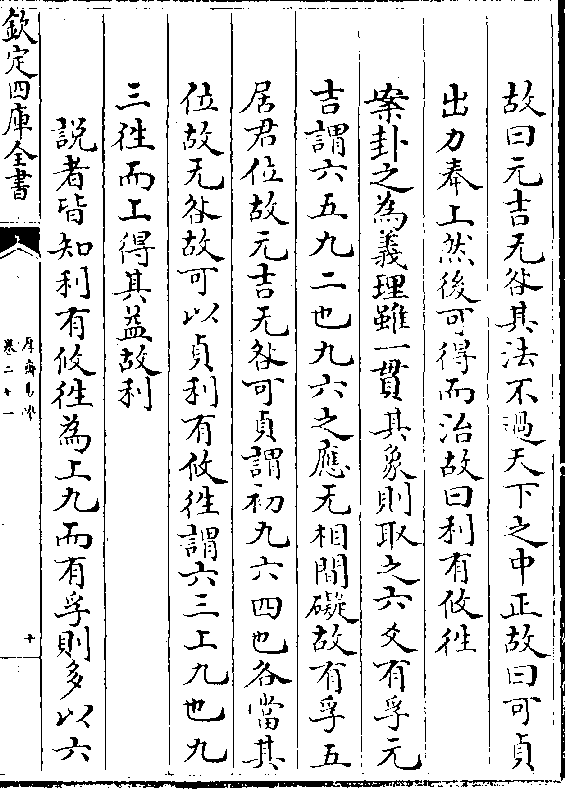 故曰元吉无咎其法不過天下之中正故曰可貞
出力奉上然後可得而治故曰利有攸徃
案卦之為義理雖一貫其象則取之六爻有孚元
吉謂六五九二也九六之應无相間礙故有孚五
居君位故元吉无咎可貞謂初九六四也各當其
位故无咎故可以貞利有攸徃謂六三上九也九
三徃而上得其益故利
說者皆知利有攸徃為上九而有孚則多以六
欽定四庫全書
厚齋易學
卷二十一
十